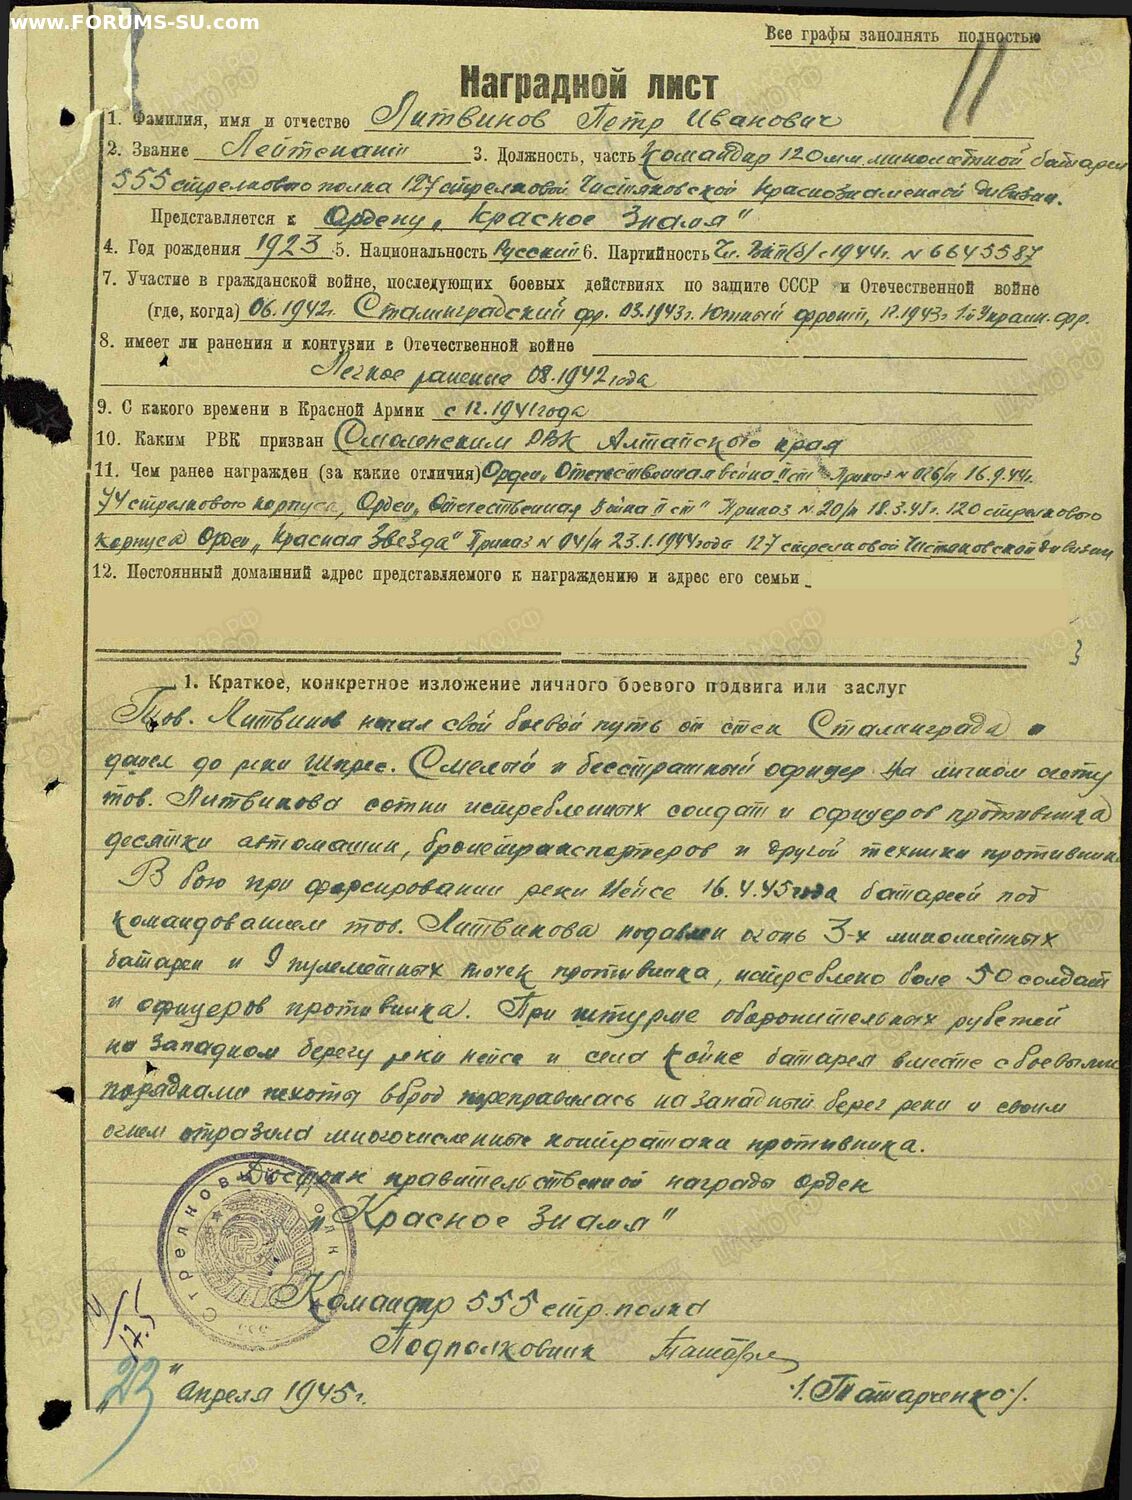 www.FORUMS-SU.com
Все графы заполнять полностью
11
Наградной лист
1. Фамилия, имя и отчество Литвинов Петр Иванович
2. Звание Лейтенант 3. Должность, часть Командир 120 мм минометной батареи
555 стрелкового полка 127 стрелковой Чистяковской Краснознаменной дивизии.
Представляется к Ордену „Красное Знамя"
4. Год рождения 1923 5. Национальность Русский 6. Партийность Чл. ВКП(б) с 1944г. № 6645587
7. Участие в гражданской войне, последующих боевых действиях по защите СССР и Отечественной войне
(где, когда) 06.1942г. Сталинградский фр. 03.1943г. Южный фронт, 12.1943г. 1й Украин. фр.
8. имеет ли ранения и контузии в Отечественной войне
Легкое ранение 08.1942 года
9. С какого времени в Красной Армии с 12.1941 года
10. Каким РВК призван Смоленским РВК Алтайского края
11. Чем ранее награжден (за какие отличия) Орден „Отечественная война II ст" Приказ № 026/н 16.9.44г.
74 стрелкового корпуса, Орден „Отечественная война II ст" Приказ № 20/н 18.3.45г. 120 стрелкового
корпуса Орден „Красная Звезда" Приказ № 04/н 23.1.1944 года 127 стрелковой Чистяковской дивизии
12. Постоянный домашний адрес представляемого к награждению и адрес его семьи
3
1. Краткое, конкретное изложение личного боевого подвига или заслуг
Тов. Литвинов начал свой боевой путь от стен Сталинграда и
дошел до реки Шпрее. Смелый и бесстрашный офицер. На личном счету
тов. Литвинова сотни истребленных солдат и офицеров противника
десятки автомашин, бронетранспортеров и другой техники противника
В бою при форсировании реки Нейсе 16.4.45 года батареей под
командованием тов. Литвинова подавлен огонь 3-х минометных
батареи и 9 пулеметных точек противника, истреблено боле 50 солдат
и офицеров противника. При штурме оборонительных рубежей
на западном берегу реки Нейсе и села Койне батарея вместе с боевыми
порядками пехоты вброд переправилась на западный берег реки и своим
огнем отразила многочисленные контратаки противника.
Достоин правительственной награды орден
„Красное Знамя"
Стрелковый полк
555
Командир 555 стр. полка
Подполковник
/. Татарченко ./.
„23" апреля 1945г.